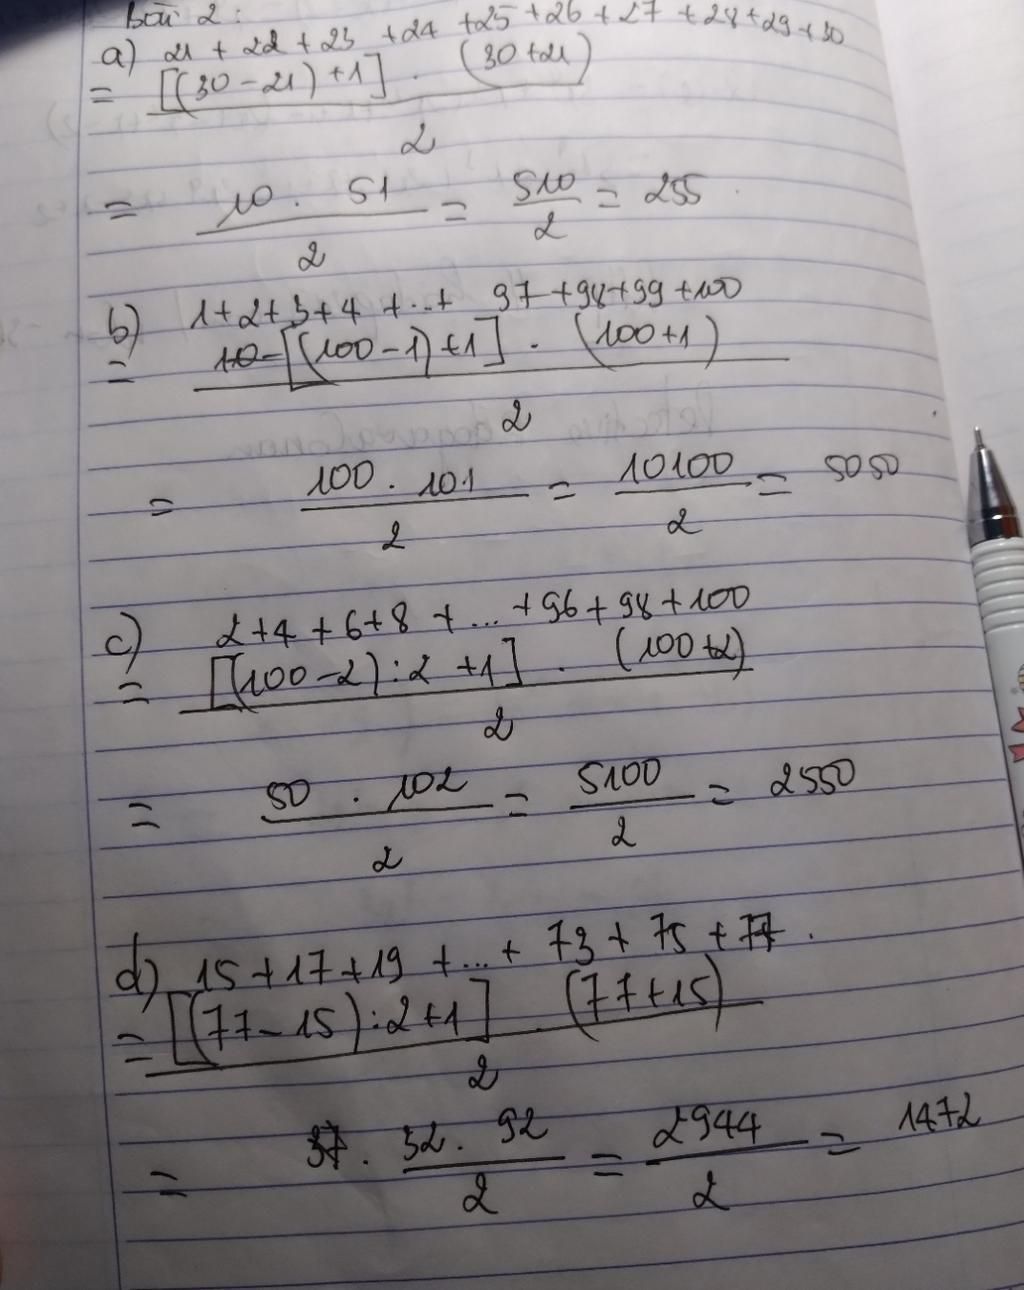 Bài 2:
a) 21 + 22 + 23 + 24 + 25 + 26 + 27 + 28 + 29 + 30
= [(30 - 21) + 1] . (30 + 21)
2
= 10 . 51 = 510 = 255
2 2
b) 1 + 2 + 3 + 4 + ... + 97 + 98 + 99 + 100
= 10 - [(100 - 1) + 1] . (100 + 1)
2
= 100 . 101 = 10100 = 5050
2 2
c) 2 + 4 + 6 + 8 + ... + 96 + 98 + 100
= [(100 - 2) : 2 + 1] . (100 + 2)
2
= 50 . 102 = 5100 = 2550
2 2
d) 15 + 17 + 19 + ... + 73 + 75 + 77 .
= [(77 - 15) : 2 + 1] . (77 + 15)
2
= 37 . 32 . 92 = 2944 = 1472
2 2